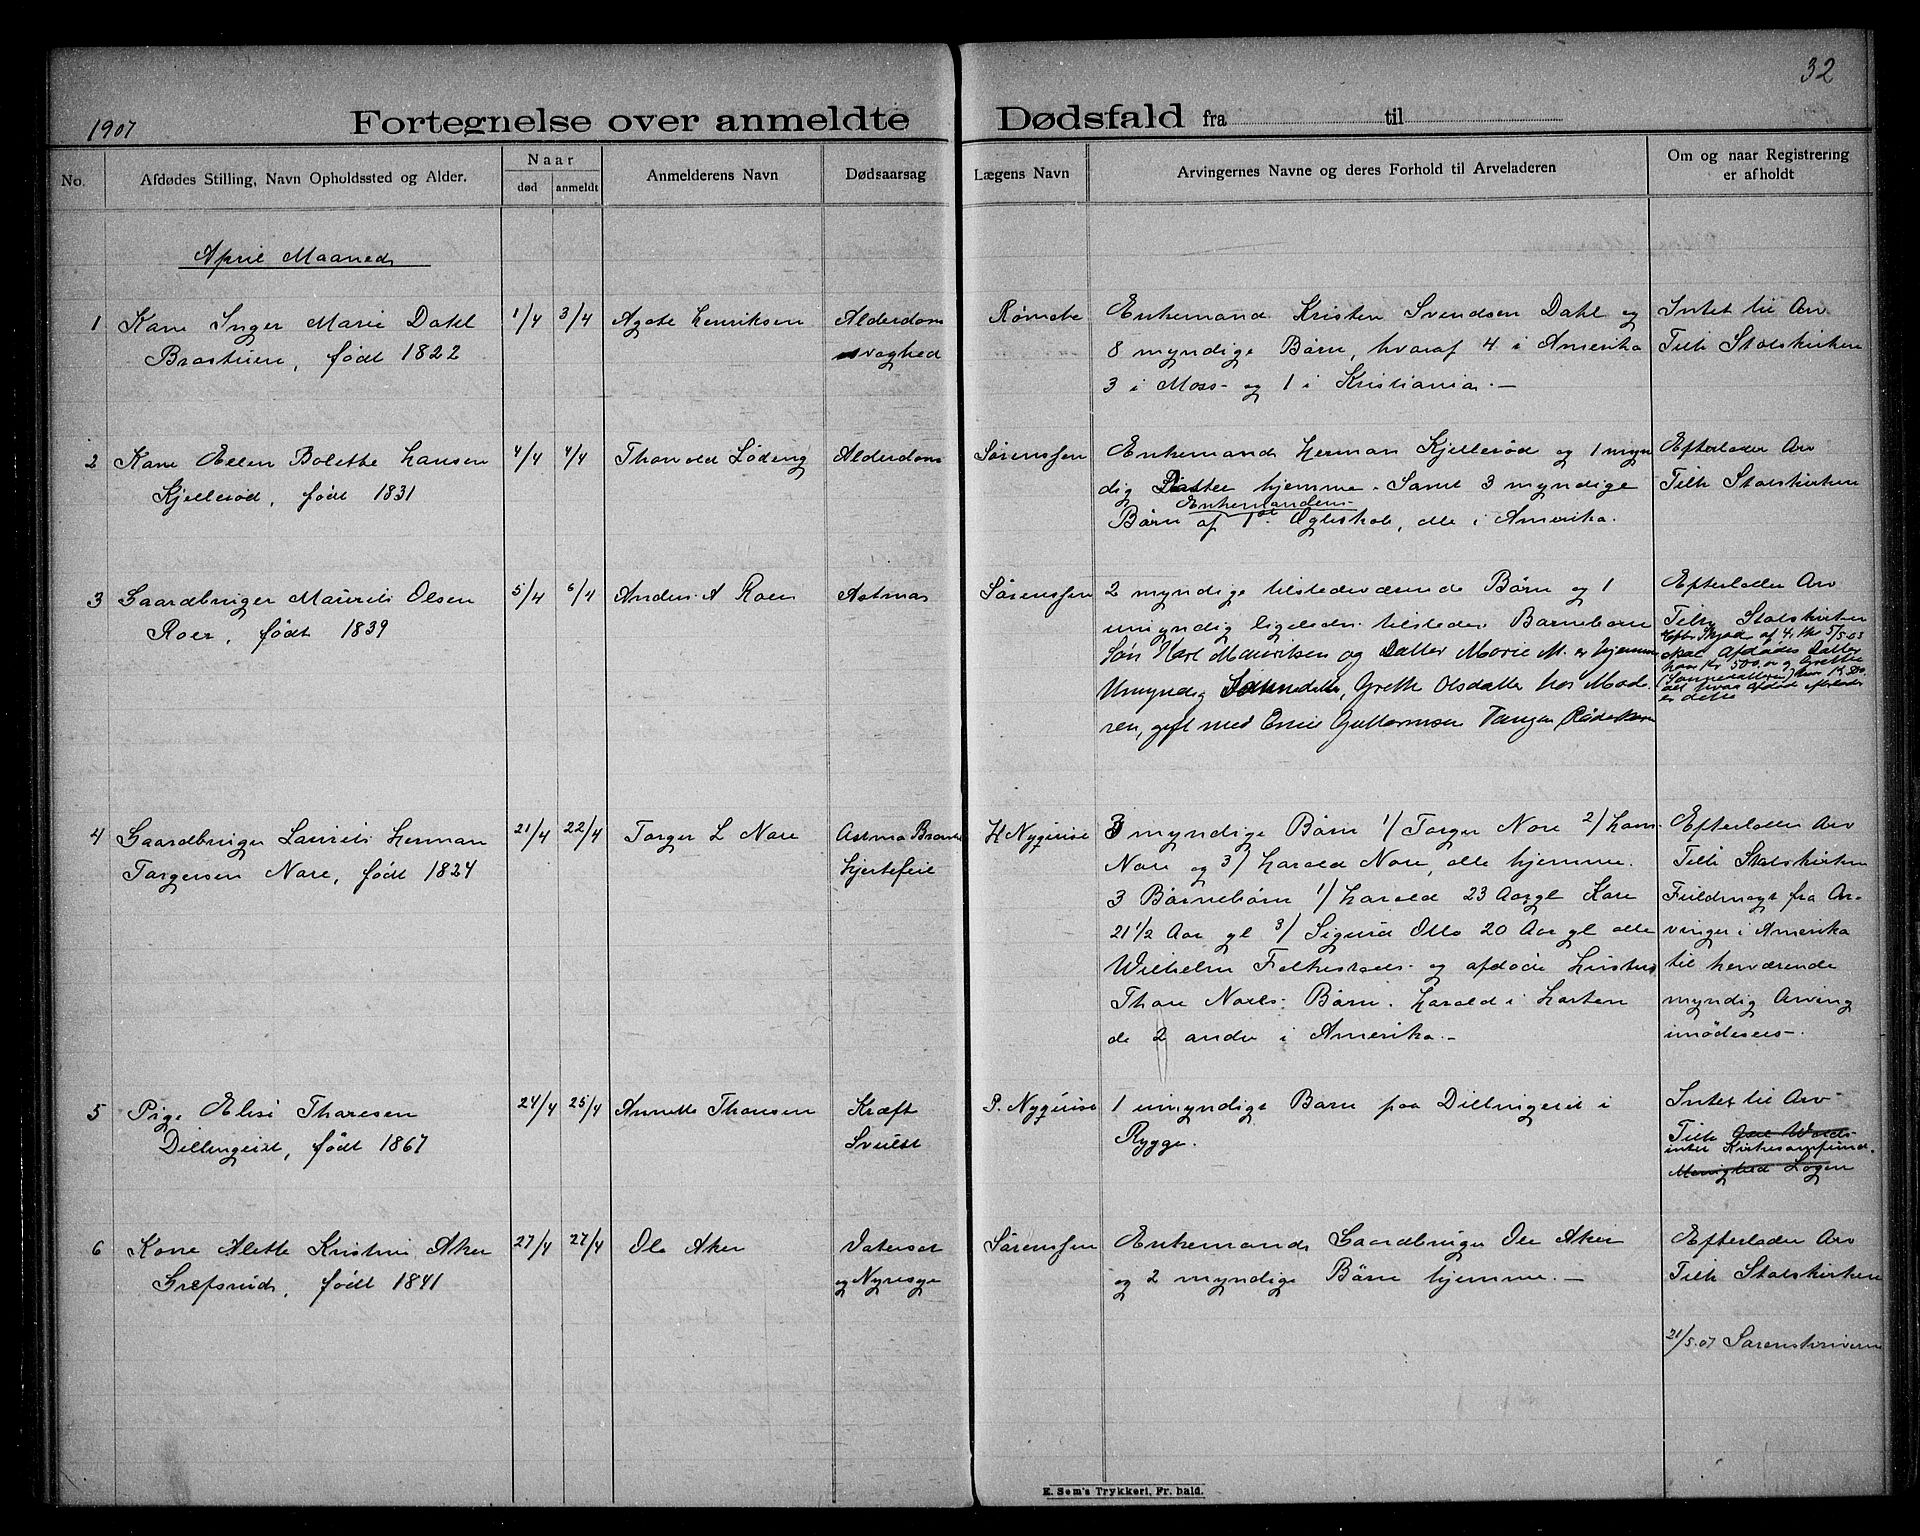 32
1907
Fortegnelse over anmeldte Dødsfald fra til
No.
Afdødes Stilling, Navn Opholdssted og Alder.
Naar
død anmeldt
Anmelderens Navn
Dødsaarsag
Lægens Navn
Arvingernes Navne og deres Forhold til Arveladeren
Om og naar Registrering
er afholdt
April Maaned
1 Kone Inger Marie Dahl
Brostuen, født 1822
1/4 3/4
Agate Henriksen
Alderdoms
svaghed
Enkemand Kristen Svendsen Dahl og
8 myndige Børn, hvoraf 4 i Amerika
3 i Moss- og 1 i Kristiania. —
Intet til Arv
Tilh Statskirken
2 Kone Ellen Bolette Hansen
Kjellerød, født 1831
4/4 4/4
Thorvald Løding
Alderdom
Sørenssen
Enkemand Herman Kjellerød og 1 myn
dig Datter hjemme. Samt 3 myndige
Enkemandens
Børn af 1st Ægteskab, alle i Amerika.
Efterlader Arv
Tilh Statskirken
3 Gaardbruger Maurits Olsen
Roer, født 1839
5/4 6/4
Anders A Roer
Astma
Sørenssen
2 myndige tilstedeværende Børn og 1
umyndig ligeledes tilstede Barnebarn
Søn Karl Mauritsen og Datter Marie M. er hjemme
Umyndig Sønnedatter, Grethe Olsdatter hos Mod.
ren, gift med Emil Guttormsen Tangen Rødsskoven
Efterlader Arv
Tilh Statskirken
Efter Skjøde af 4, 5/5-03
skal Afdødes Datter
have Kr 500, og Grethe
(Sønnedatteren)
alt hvad afdød efterlader
er dette
4 Gaardbruger Laurits Herman
Torgersen Nore, født 1824
21/4 22/4
Torger L Nore
Astma
Hjertefeil
H Nyquist
3 myndige Børn 1/ Torger Nore 2/ Hans
Nore og 3/ Harald Nore, alle hjemme.
3 Børnebørn 1/ Harald 23 Aar gl Kare
21 1/2 Aar gl 3/ Sigurd Otto 20 Aar gl alle
Wilhelm Folkestads og afdøde Hustru
Thore Nores Børn. Harald i Horten
de 2 andre i Amerika.-
Efterlader Arv
Tilh Statskirken
Fuldmagt fra Ar-
vinger i Amerika
til herværende
myndig Arving
imødesees-.
5 Pige Elise Thoresen
Dillingeist, født 1867
24/4 25/4
Annette Thoresen
Kræft
Svulst
P. Nyquist
1 umyndige Barn paa Dillingeist i
Rygge.
Intet til Arv-
Tilh
intet Kirkesamfund.
Menighed Logen
6 Kone Alette Kristine Aker
Grefsrud, født 1841
27/4 27/4
Ole Aker
Vatersot
og Nyresyge
Sørenssen
Enkemand Gaardbruger Ole Aker
og 2 myndige Børn hjemme. —
Efterlader Arv
Tilh Statskirken
21/5.07 Sorenskriveren
E. Sem's Trykkeri, Fr. hald.